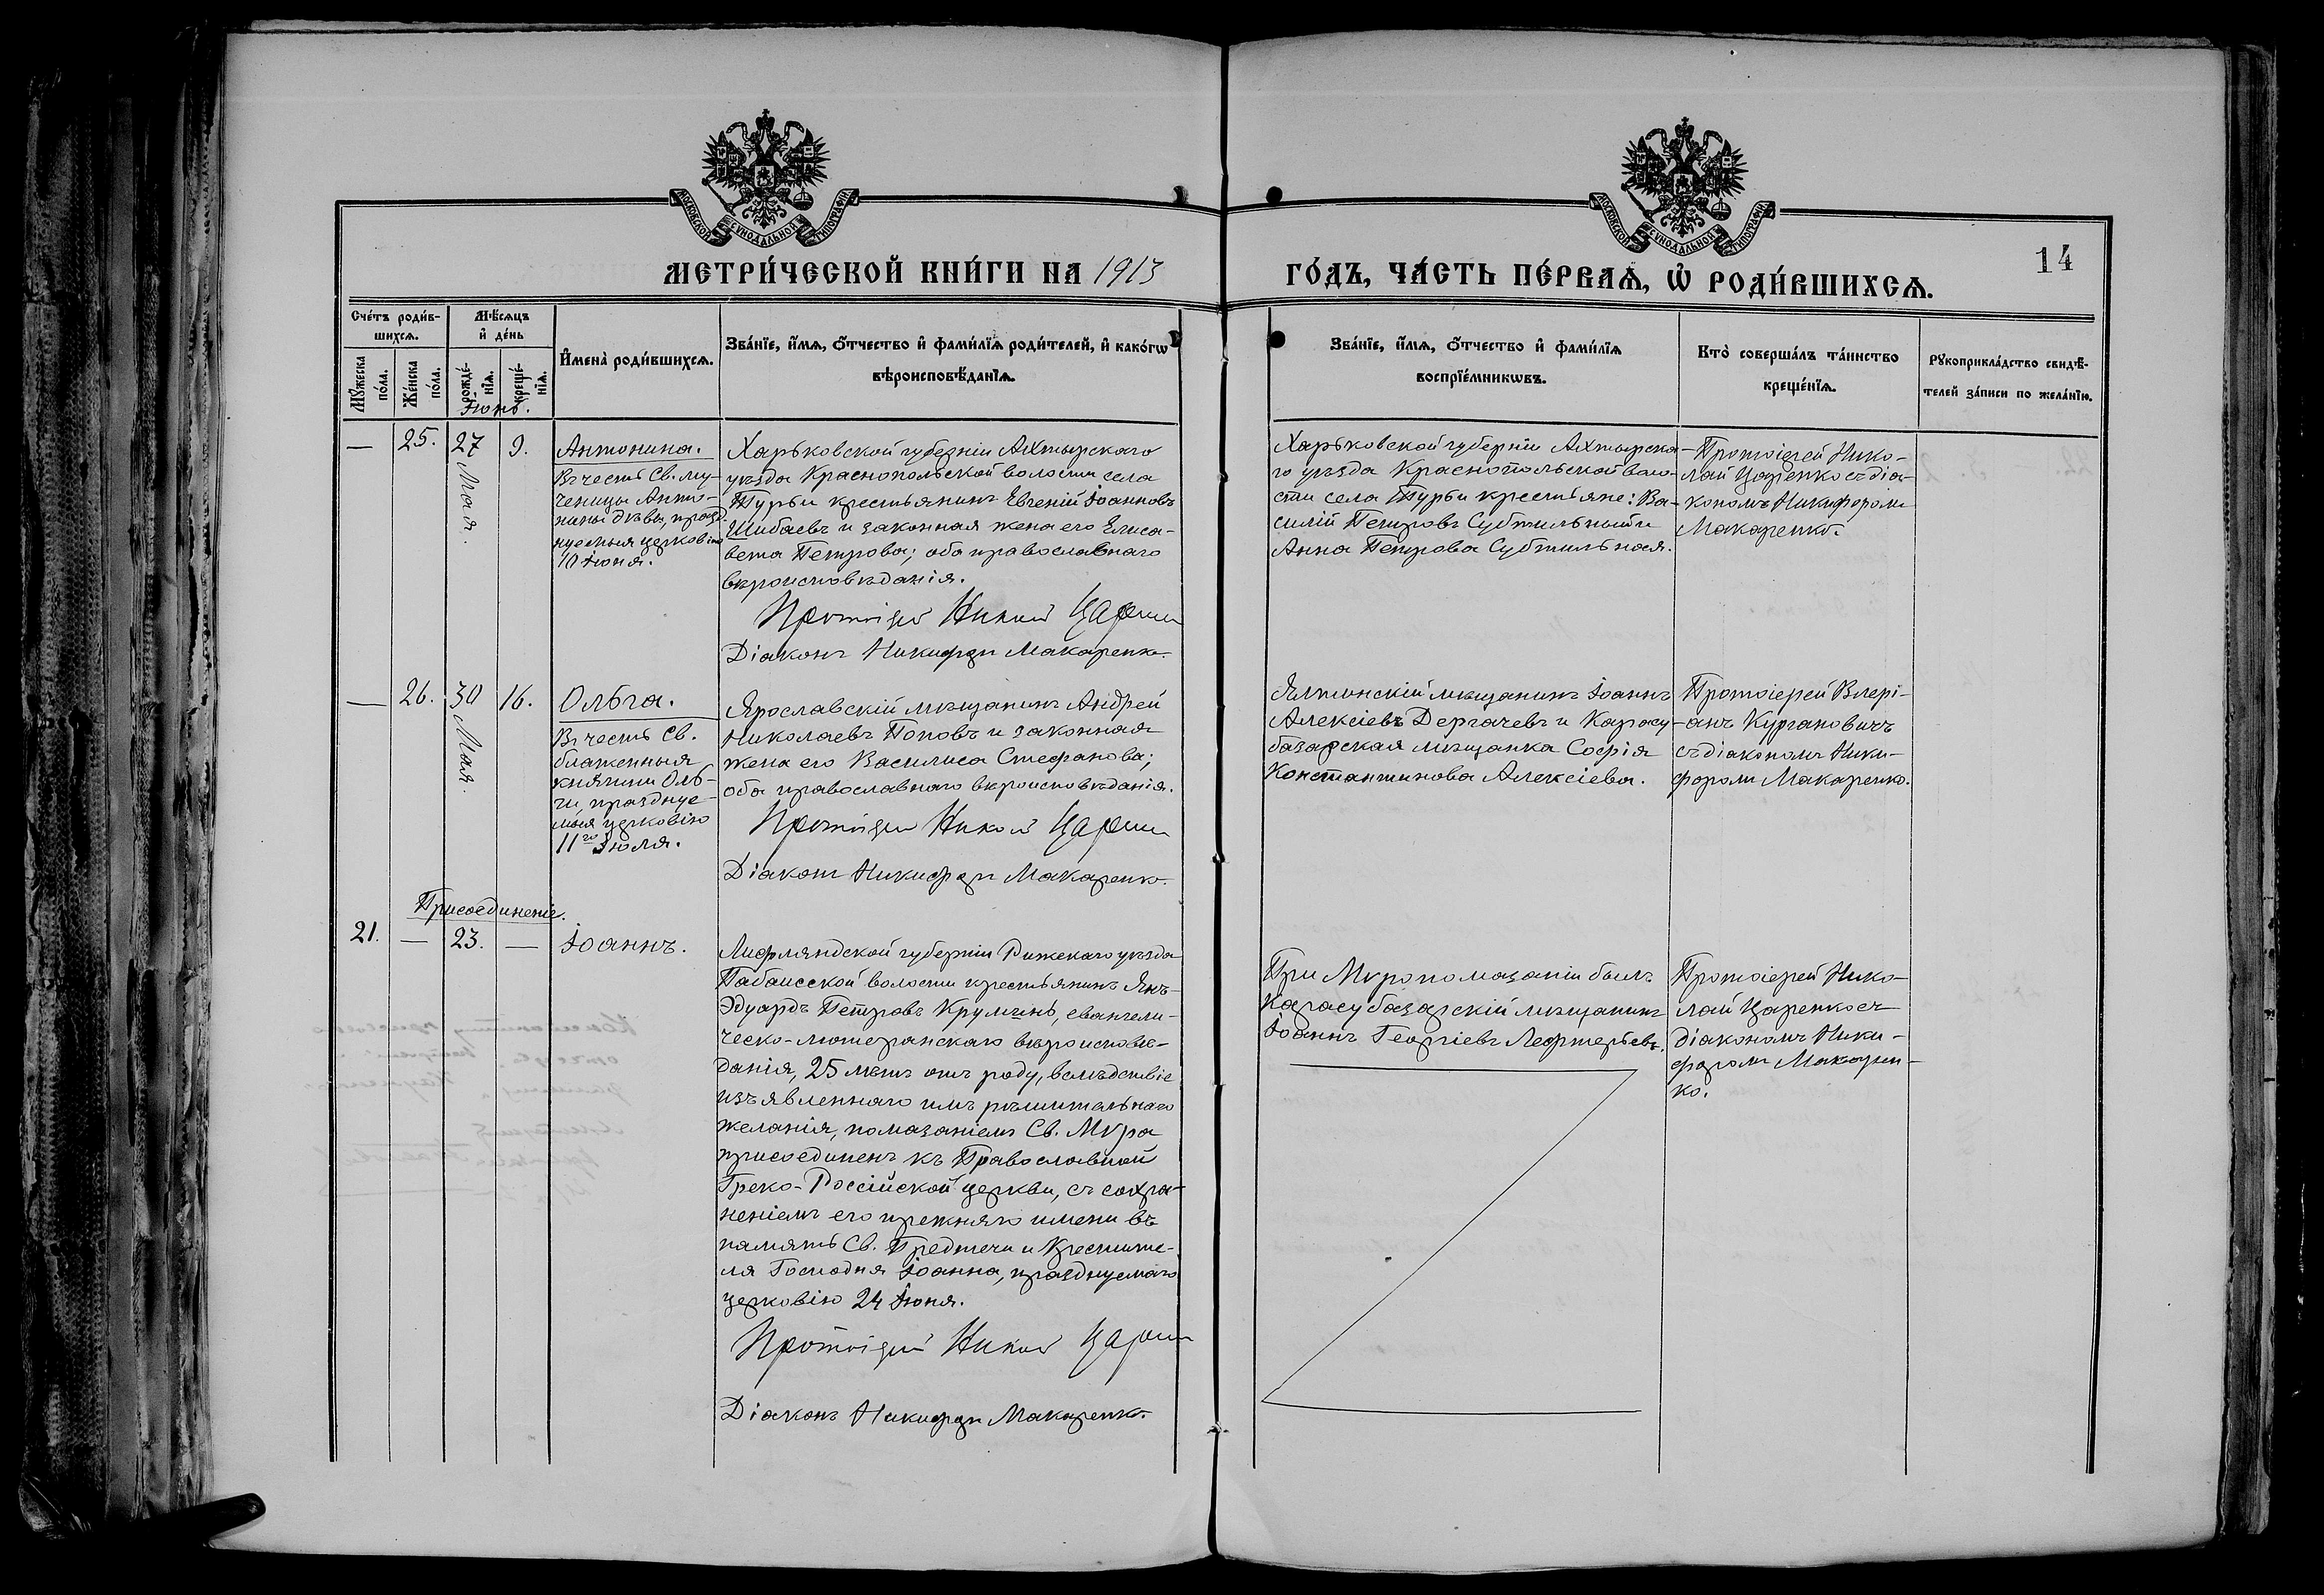 МОСКОВСКОЙ СѴНОДАЛЬНОЙ ТИПОГРАФІИ
МОСКОВСКОЙ СѴНОДАЛЬНОЙ ТИПОГРАФІИ
МЕТРИ́ЧЕСКОЙ КНИ́ГИ НА 1913
ГО́ДЪ, ЧА́СТЬ ПЕ́РВАѦ, Ѡ҆ РОДИ́ВШИХСѦ.
14
Сче́тъ роди́в-
шихсѧ.
Мѣ́сяцъ
и҆ де́нь
Мꙋ́жеска
по́ла.
Же́нска
по́ла.
рожде́-
нїѧ.
креще́-
нїѧ.
И҆мена̀ роди́вшихсѧ.
Зва́нїе, и҆́мѧ, о҆́тчество и҆ фами́лїѧ роди́телей, и҆ како́гѡ
вѣроисповѣ́данїѧ.
Зва́нїе, и҆́мѧ, о҆́тчество и҆ фами́лїѧ
воспрїе́мникѡвъ.
Кто̀ соверша́лъ та́инство
креще́нїѧ.
Рꙋкоприкла́дство свидѣ́-
телей за́писи по жела́нїю.
Іюнь.
— 25. 27 9. Антонина.
Мая.
Въ честь Св. му-
ченицы Анто-
нины дѣвы, празд-
нуемыя церковію
10 Іюня.
Харьковской губерніи Ахтырскаго
уѣзда Краснопольской волости села
Турьи крестьянинъ Евгеній Іоанновъ
Шибаевъ и законная жена его Елиса-
вета Петрова; оба православнаго
вѣроисповѣданія.
Протоіерей Николай Царенко
Діаконъ Никифоръ Макаренко.
Харьковской губерніи Ахтырска-
го уѣзда Краснопольской воло-
сти села Турьи крестьяне: Ва-
силій Петровъ Субтильный и
Анна Петрова Субтильная.
Протоіерей Нико-
лай Царенко съ діа-
кономъ Никифоромъ
Макаренко.
— 26. 30 16. Ольга.
Мая.
Въ честь Св.
блаженныя
княгини Оль-
ги, празднуе-
мыя церковію
11го Іюля.
Ярославскій мѣщанинъ Андрей
Николаевъ Поповъ и законная
жена его Василиса Стефанова;
оба православнаго вѣроисповѣданія.
Протоіерей Николай Царенко
Діаконъ Никифоръ Макаренко.
Ялтинскій мѣщанинъ Іоаннъ
Алексіевъ Дергачевъ и Карасу-
базарская мѣщанка Софія
Константинова Алексіева.
Протоіерей Влері-
анъ Кургановичъ
съ діакономъ Ники-
форомъ Макаренко.
Присоединеніе.
21. — 23. — Іоаннъ.
Лифляндской губерніи Рижскаго уѣзда
Пабаисской волости крестьянинъ Янъ-
Эдуардъ Петровъ Круминь, евангели-
ческо-лютеранскаго вѣроисповѣ-
данія, 25 лѣтъ отъ роду, вслѣдствіе
изъявленнаго имъ рѣшительнаго
желанія, помазаніемъ Св. Мѵра
присоединенъ къ Православной
Греко-Россійской церкви, съ сохра-
неніемъ его прежняго имени въ
память Св. Предтечи и Крестите-
ля Господня Іоанна, празднуемаго
церковію 24 Іюня.
Протоіерей Николай Царенко
Діаконъ Никифоръ Макаренко.
При Мѵропомазаніи былъ
Карасубазарскій мѣщанинъ
Іоаннъ Георгіевъ Лефтерьевъ.
Протоіерей Нико-
лай Царенко съ
діакономъ Ники-
форомъ Макарен-
ко.